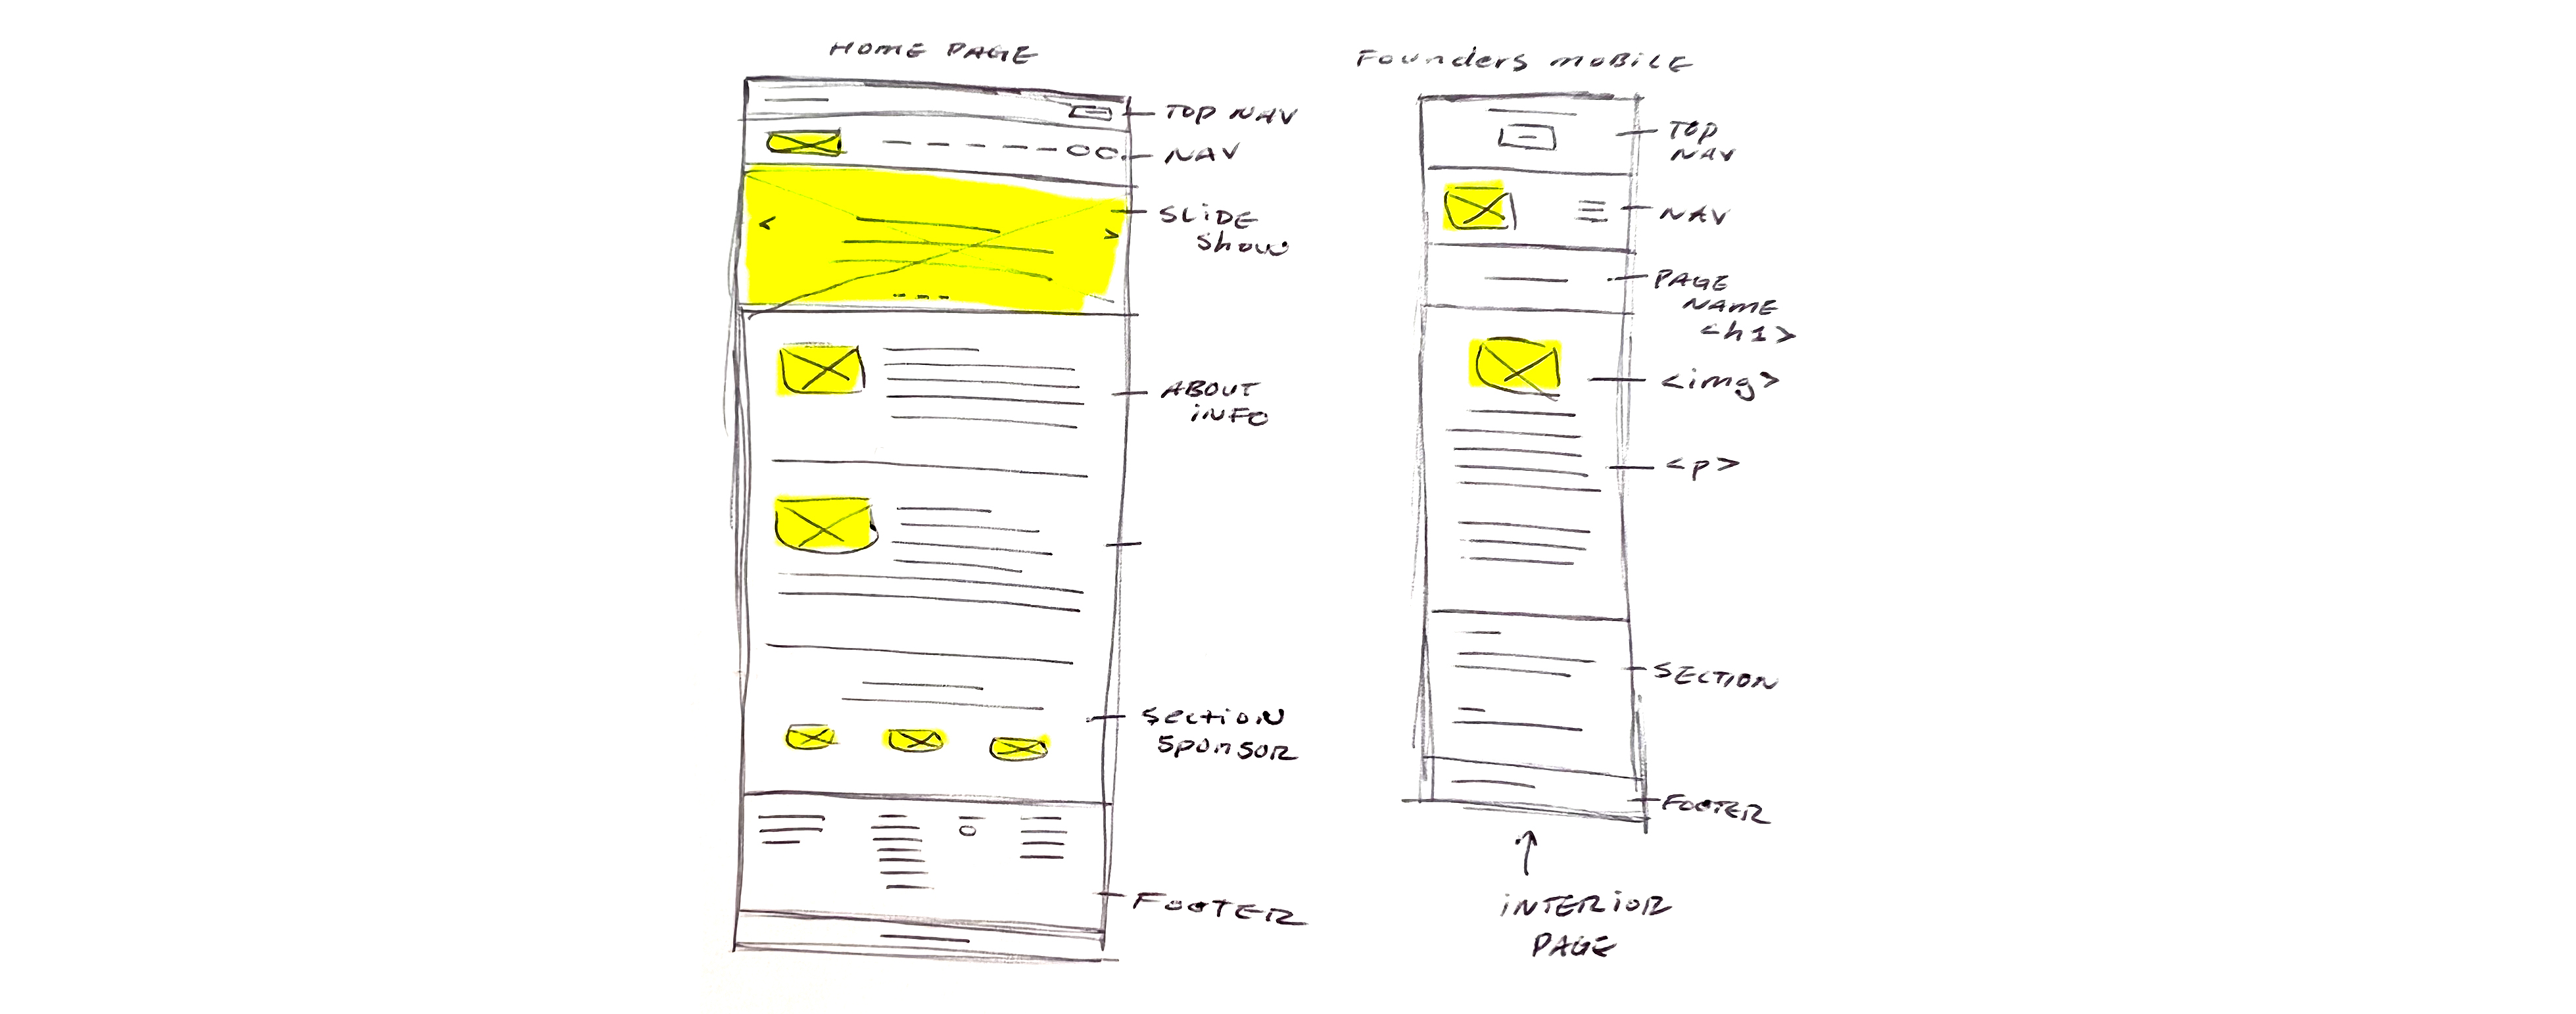 HOME PAGE
TOP NAV
NAV
SLiDE
Show
ABOUT
iNFO
Section
Sponsor
FOOTER
Founders mobile
TOP
NAV
NAV
PAGE
NAME
<h1>
<img>
<p>
SECTION
FOOTER
iNTERiOR
PAGE